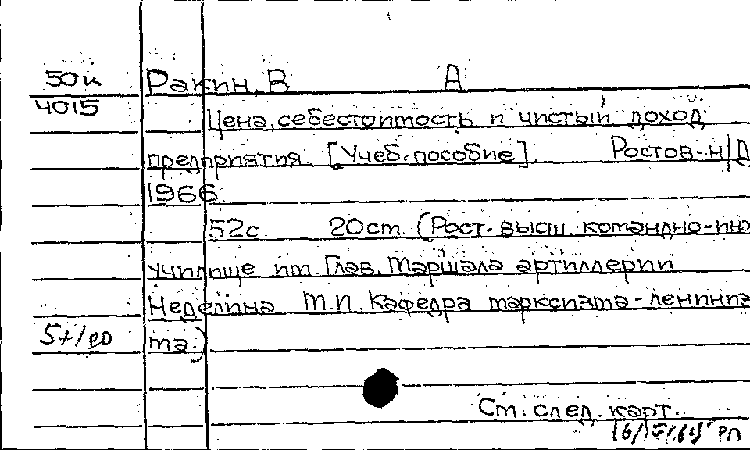 50и Ракин, В А
4015
Цена, себестоимость и чистый доход
предприятия. [Учеб. пособие] Ростов-н/Д
1966.
52с. 20cm. (Рост. высш. командно-ин
училище им. Глав. Маршала артиллерии
Неделина М.И. Кафедра марксизма-лениниз
ма.)
Ст. след. карт.